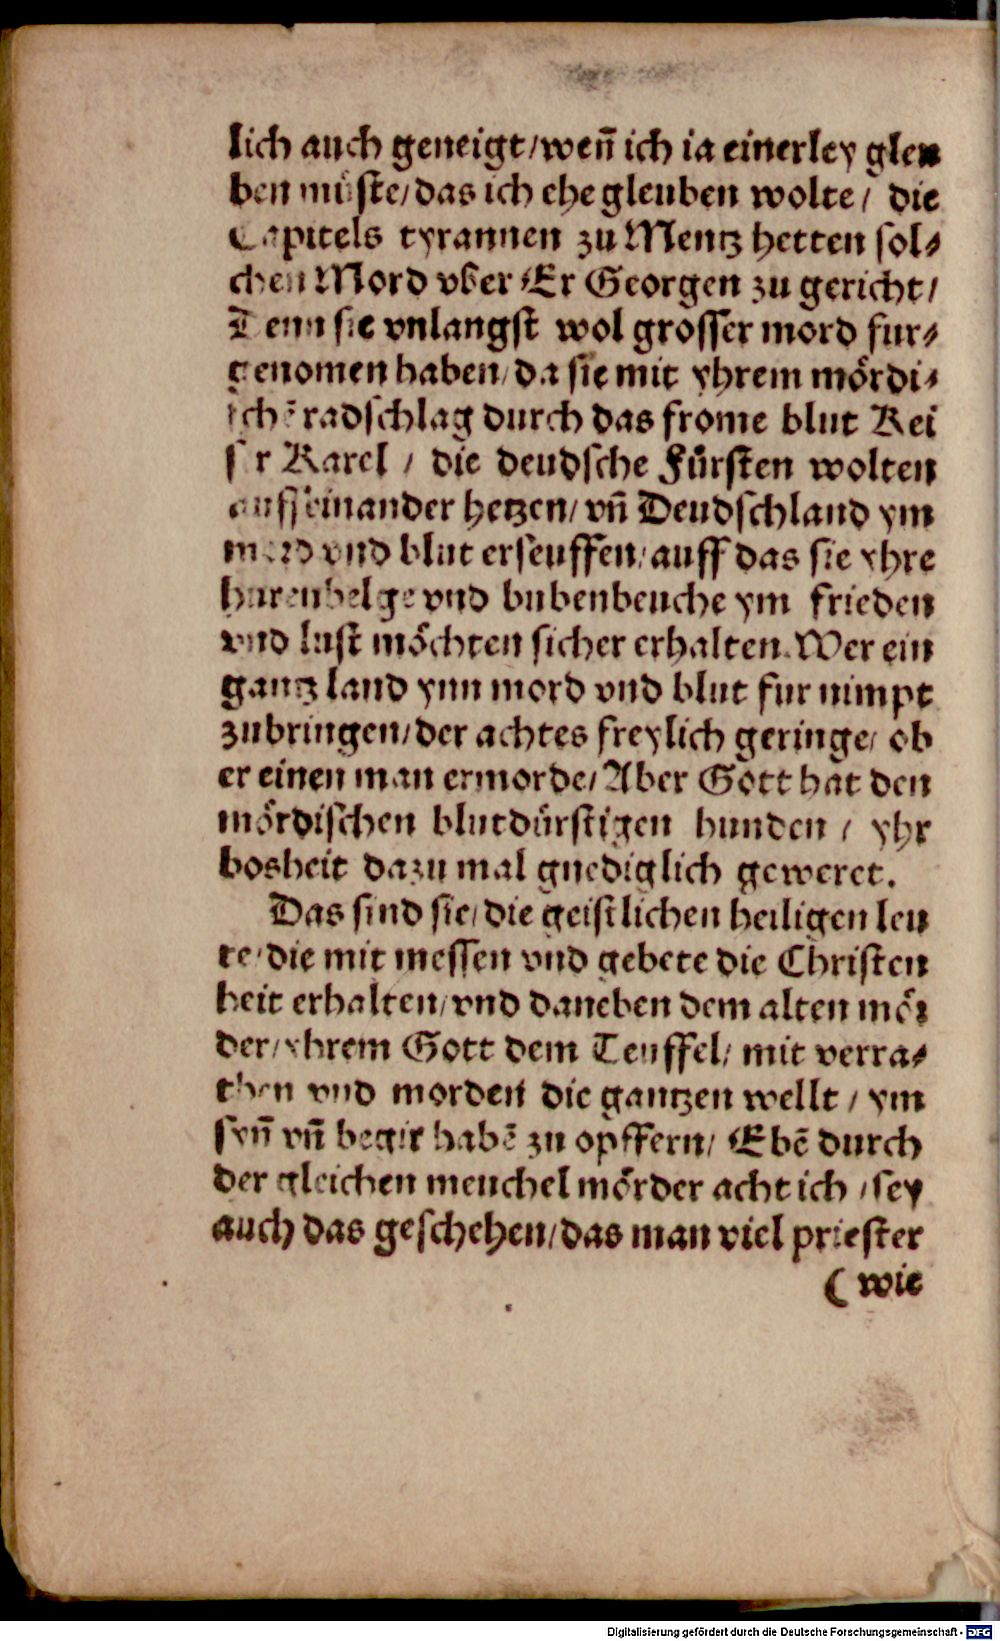 lich auch geneigt/weñ ich ia einerley gleu
ben müste/das ich ehe gleuben wolte/ die
Capitels tyrannen zu Mentz hetten sol⸗
chen Mord vber Er Georgen zu gericht/
Denn sie vnlangst wol grosser mord fur⸗
genomen haben/da sie mit yhrem mördi⸗
schē radschlag durch das frome blut Kei
ser Karel / die deudsche Fürsten wolten
auffeinander hetzen/vñ Deudschland ym
mord vnd blut erseuffen/auff das sie yhre
hurenbelge vnd bubenbeuche ym frieden
vnd lust möchten sicher erhalten. Wer ein
gantz land ynn mord vnd blut fur nimpt
zubringen/der achtes freylich geringe/ ob
er einen man ermorde/Aber Gott hat den
mördischen blutdürstigen hunden / yhr
bosheit dazu mal gnediglich geweret.
Das sind sie/die geistlichen heiligen leu
te/die mit messen vnd gebete die Christen
heit erhalten/vnd daneben dem alten mör
der/yhrem Gott dem Teuffel/ mit verra⸗
then vnd morden die gantzen wellt / ym
synñ vñ begir habē zu opffern/ Ebē durch
der gleichen meuchel mörder acht ich /sey
auch das geschehen/das man viel priester
(wie
Digitalisierung gefördert durch die Deutsche Forschungsgemeinschaft - DFG